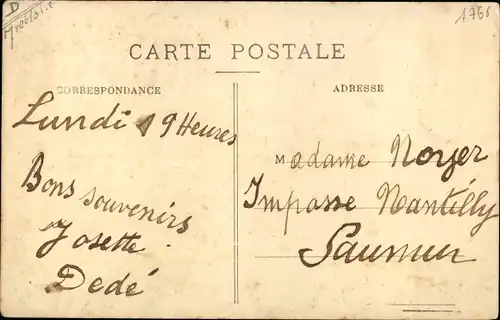 D
1766
CARTE POSTALE
CORRESPONDANCE
Lundi 19 Heures
Bons souvenirs
Josette
Dedé
ADRESSE
Madame Noyer
Impasse Nantilly
Saumur